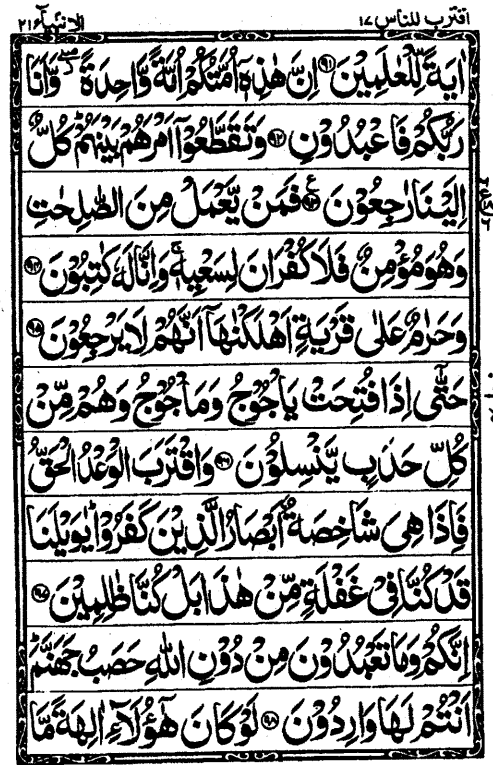 اقترب للناس ١٧
الانبیآء ٢١
اٰیَةً لِّلْعٰلَمِیْنَ ﴿٩١﴾ اِنَّ هٰذِهٖۤ اُمَّتُكُمْ اُمَّةً وَّاحِدَةً وَّاَنَا
رَبُّكُمْ فَاعْبُدُوْنِ ﴿٩٢﴾ وَتَقَطَّعُوْۤا اَمْرَهُمْ بَیْنَهُمْ ؕ كُلٌّ
اِلَیْنَا رٰجِعُوْنَ ﴿٩٣﴾ فَمَنْ یَّعْمَلْ مِنَ الصّٰلِحٰتِ
وَهُوَ مُؤْمِنٌ فَلَا كُفْرَانَ لِسَعْیِهٖ ۚ وَاِنَّا لَهٗ كٰتِبُوْنَ ﴿٩٤﴾
وَحَرٰمٌ عَلٰی قَرْیَةٍ اَهْلَكْنٰهَاۤ اَنَّهُمْ لَا یَرْجِعُوْنَ ﴿٩٥﴾
حَتّٰۤی اِذَا فُتِحَتْ یَاْجُوْجُ وَمَاْجُوْجُ وَهُمْ مِّنْ
كُلِّ حَدَبٍ یَّنْسِلُوْنَ ﴿٩٦﴾ وَاقْتَرَبَ الْوَعْدُ الْحَقُّ
فَاِذَا هِیَ شَاخِصَةٌ اَبْصَارُ الَّذِیْنَ كَفَرُوْا ؕ یٰوَیْلَنَا
قَدْ كُنَّا فِیْ غَفْلَةٍ مِّنْ هٰذَا بَلْ كُنَّا ظٰلِمِیْنَ ﴿٩٧﴾
اِنَّكُمْ وَمَا تَعْبُدُوْنَ مِنْ دُوْنِ اللّٰهِ حَصَبُ جَهَنَّمَ ؕ
اَنْتُمْ لَهَا وٰرِدُوْنَ ﴿٩٨﴾ لَوْ كَانَ هٰۤؤُلَآءِ اٰلِهَةً مَّا